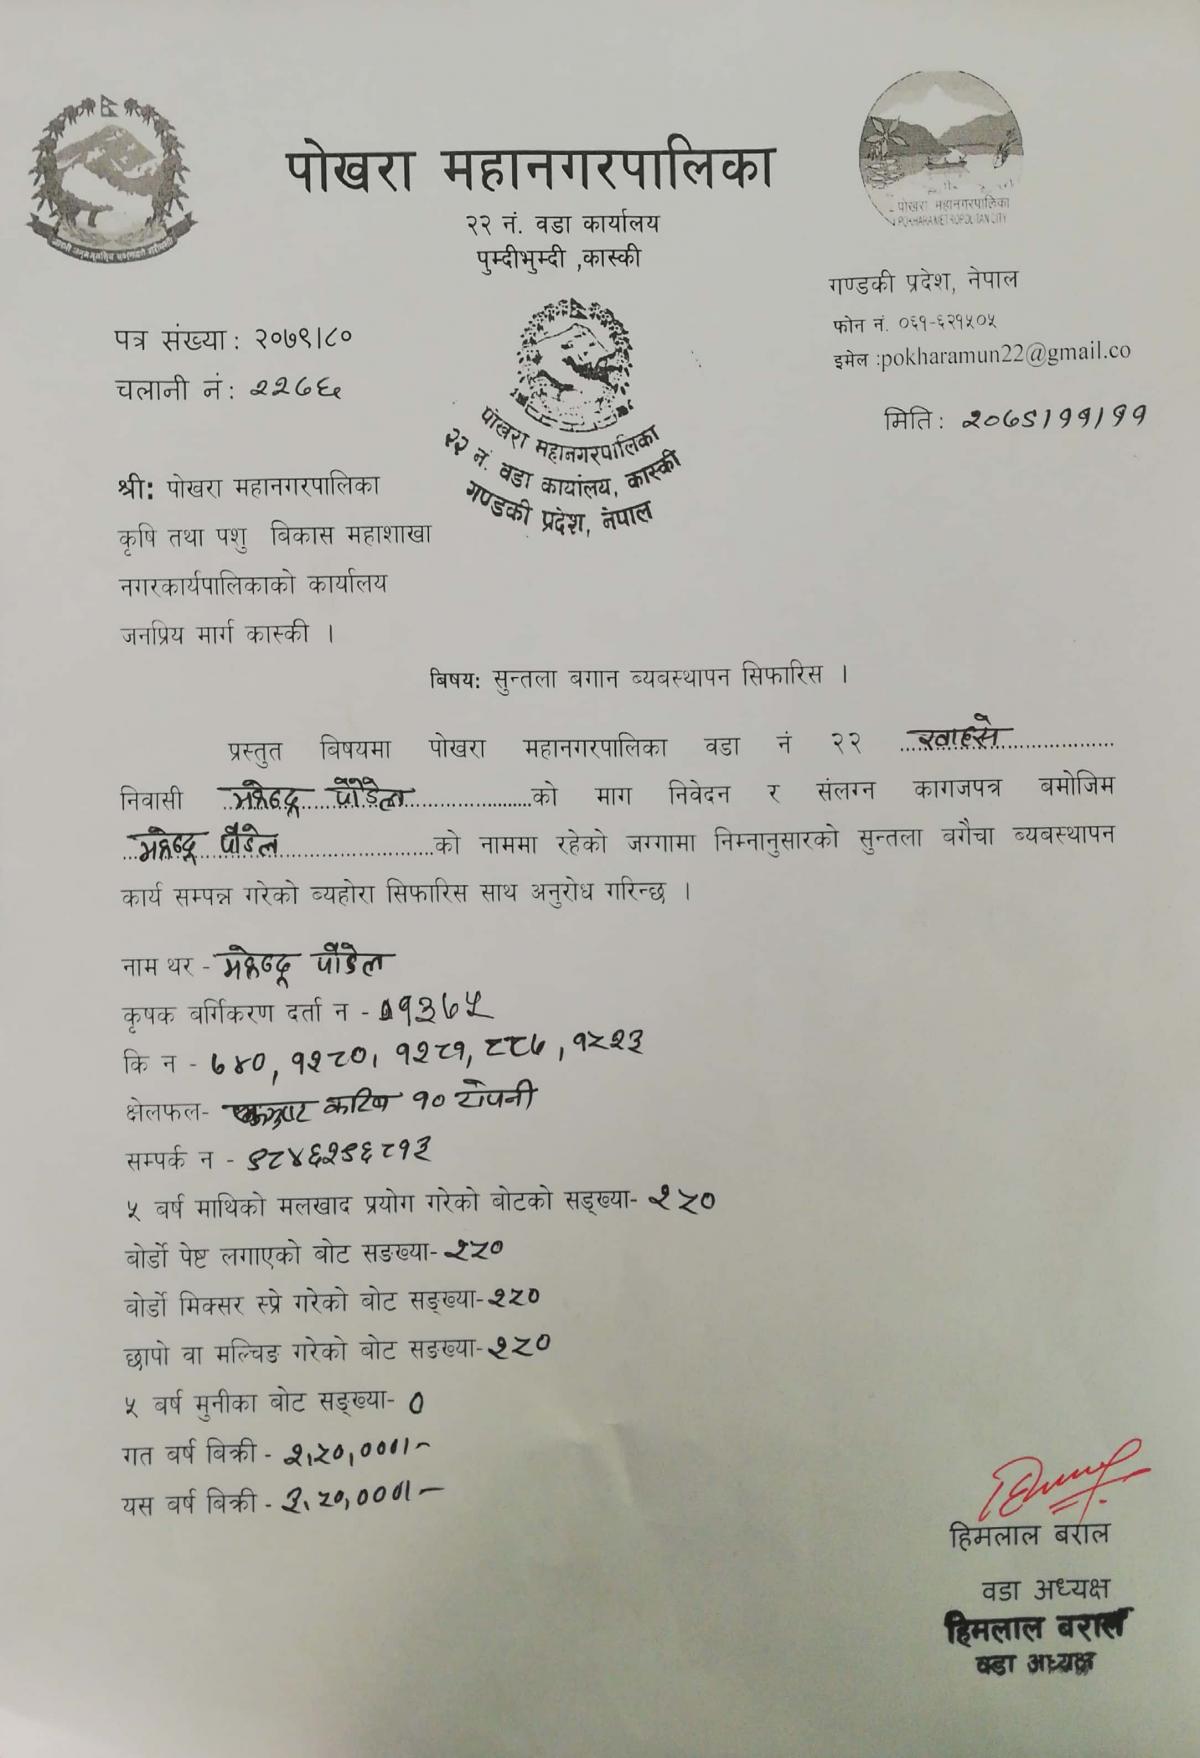 पोखरा महानगरपालिका
२२ नं. वडा कार्यालय
पुम्दीभुम्दी ,कास्की
पोखरा महानगरपालिका
POKHARA METROPOLITAN CITY
गण्डकी प्रदेश, नेपाल
फोन नं. ०६१-६२१५०५
इमेल :pokharamun22@gmail.co
पत्र संख्या: २०७९।८०
चलानी नं: २२७६
मिति: २०७९।११।११
पोखरा महानगरपालिका
२२ नं. वडा कार्यालय, कास्की
गण्डकी प्रदेश, नेपाल
श्री: पोखरा महानगरपालिका
कृषि तथा पशु बिकास महाशाखा
नगरकार्यपालिकाको कार्यालय
जनप्रिय मार्ग कास्की ।
बिषय: सुन्तला बगान ब्यबस्थापन सिफारिस ।
प्रस्तुत बिषयमा पोखरा महानगरपालिका वडा नं २२
निवासी पौडेल को माग निवेदन र संलग्न कागजपत्र बमोजिम
पौडेल को नाममा रहेको जग्गामा निम्नानुसारको सुन्तला बगैचा ब्यबस्थापन
कार्य सम्पन्न गरेको ब्यहोरा सिफारिस साथ अनुरोध गरिन्छ ।
नाम थर - पौडेल
कृषक बर्गिकरण दर्ता न - १३७५
कि न - ७४०, १२८०, १२८१, ८८७, १५२३
क्षेलफल- करिब १० रोपनी
सम्पर्क न - ९८४६२९६८१३
५ बर्ष माथिको मलखाद प्रयोग गरेको बोटको सङ्ख्या- २५०
बोर्डो पेष्ट लगाएको बोट सङख्या- २५०
बोर्डो मिक्सर स्प्रे गरेको बोट सङ्ख्या- २५०
छापो वा मल्चिङ गरेको बोट सङख्या- २५०
५ बर्ष मुनीका बोट सङ्ख्या- ०
गत बर्ष बिक्री - २,५०,०००।-
यस बर्ष बिक्री - ३,५०,०००।-
हिमलाल बराल
वडा अध्यक्ष
हिमलाल बराल
वडा अध्यक्ष